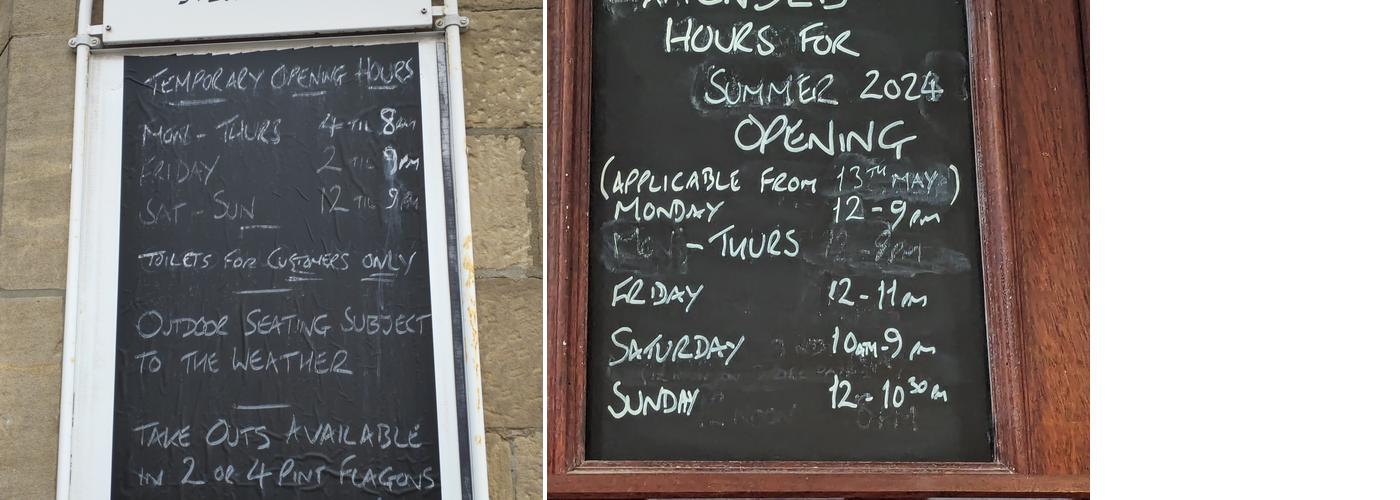 TEMPORARY OPENING HOURS
MON - THURS 4 TIL 8PM
FRIDAY 2 TIL 9PM
SAT - SUN 12 TIL 9PM
TOILETS FOR CUSTOMERS ONLY
OUTDOOR SEATING SUBJECT
TO THE WEATHER
TAKE OUTS AVAILABLE
IN 2 OR 4 PINT FLAGONS
HOURS FOR
SUMMER 2024
OPENING
(APPLICABLE FROM 13TH MAY)
MONDAY 12-9PM
MON - THURS 12-9PM
FRIDAY 12-11PM
SATURDAY 10AM-9PM
SUNDAY 12-1030PM